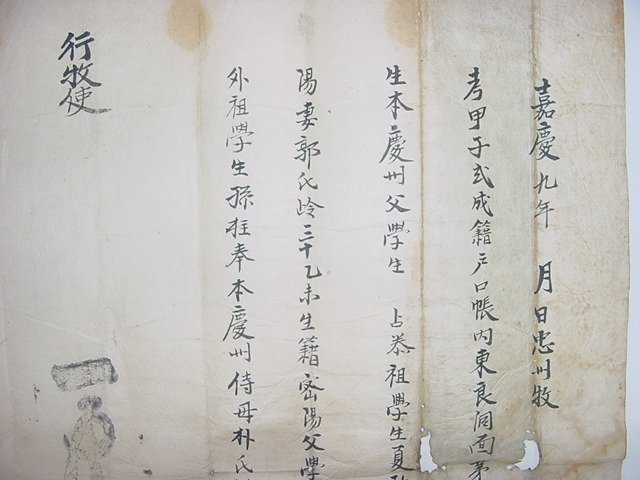 嘉慶九年 月 日忠州牧
考甲子式成籍戶口帳內東良洞面第
生本慶州父學生 占恭祖學生夏
陽妻郭氏齡三十乙未生籍密陽父學
外祖學生孫 奉本慶州侍母朴氏
行牧使